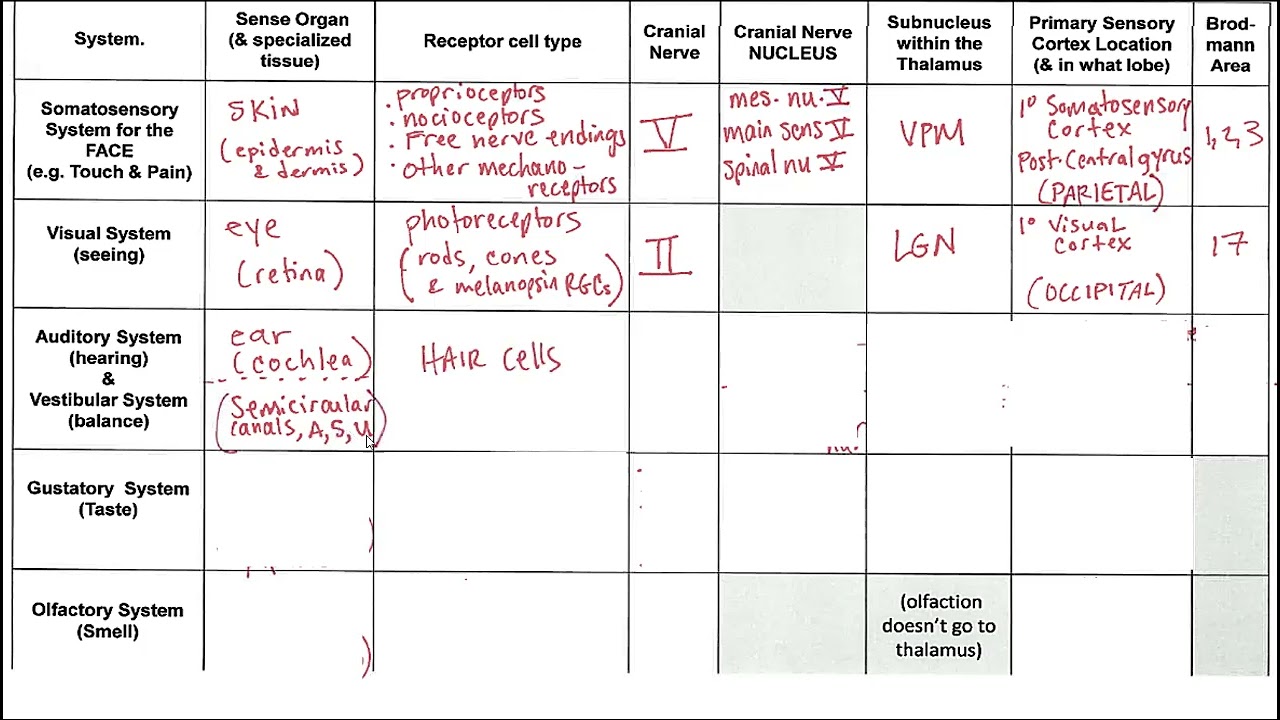 System.
Sense Organ
(& specialized
tissue)
Receptor cell type
Cranial
Nerve
Cranial Nerve
NUCLEUS
Subnucleus
within the
Thalamus
Primary Sensory
Cortex Location
(& in what lobe)
Brod-
mann
Area
Somatosensory
System for the
FACE
(e.g. Touch & Pain)
SKIN
(epidermis
& dermis)
· proprioceptors
· nocioceptors
· Free nerve endings
· other mechano-
receptors
V
mes. nu. V
main sens V
spinal nu V
VPM
1° Somatosensory
Cortex
Post-Central gyrus
(PARIETAL)
1,2,3
Visual System
(seeing)
eye
(retina)
photoreceptors
(rods, cones
& melanopsin RGCs)
II
LGN
1° Visual
cortex
(OCCIPITAL)
17
Auditory System
(hearing)
&
Vestibular System
(balance)
ear
(cochlea)
(Semicircular
canals, A, S, U)
HAIR Cells
Gustatory System
(Taste)
Olfactory System
(Smell)
(olfaction
doesn't go to
thalamus)